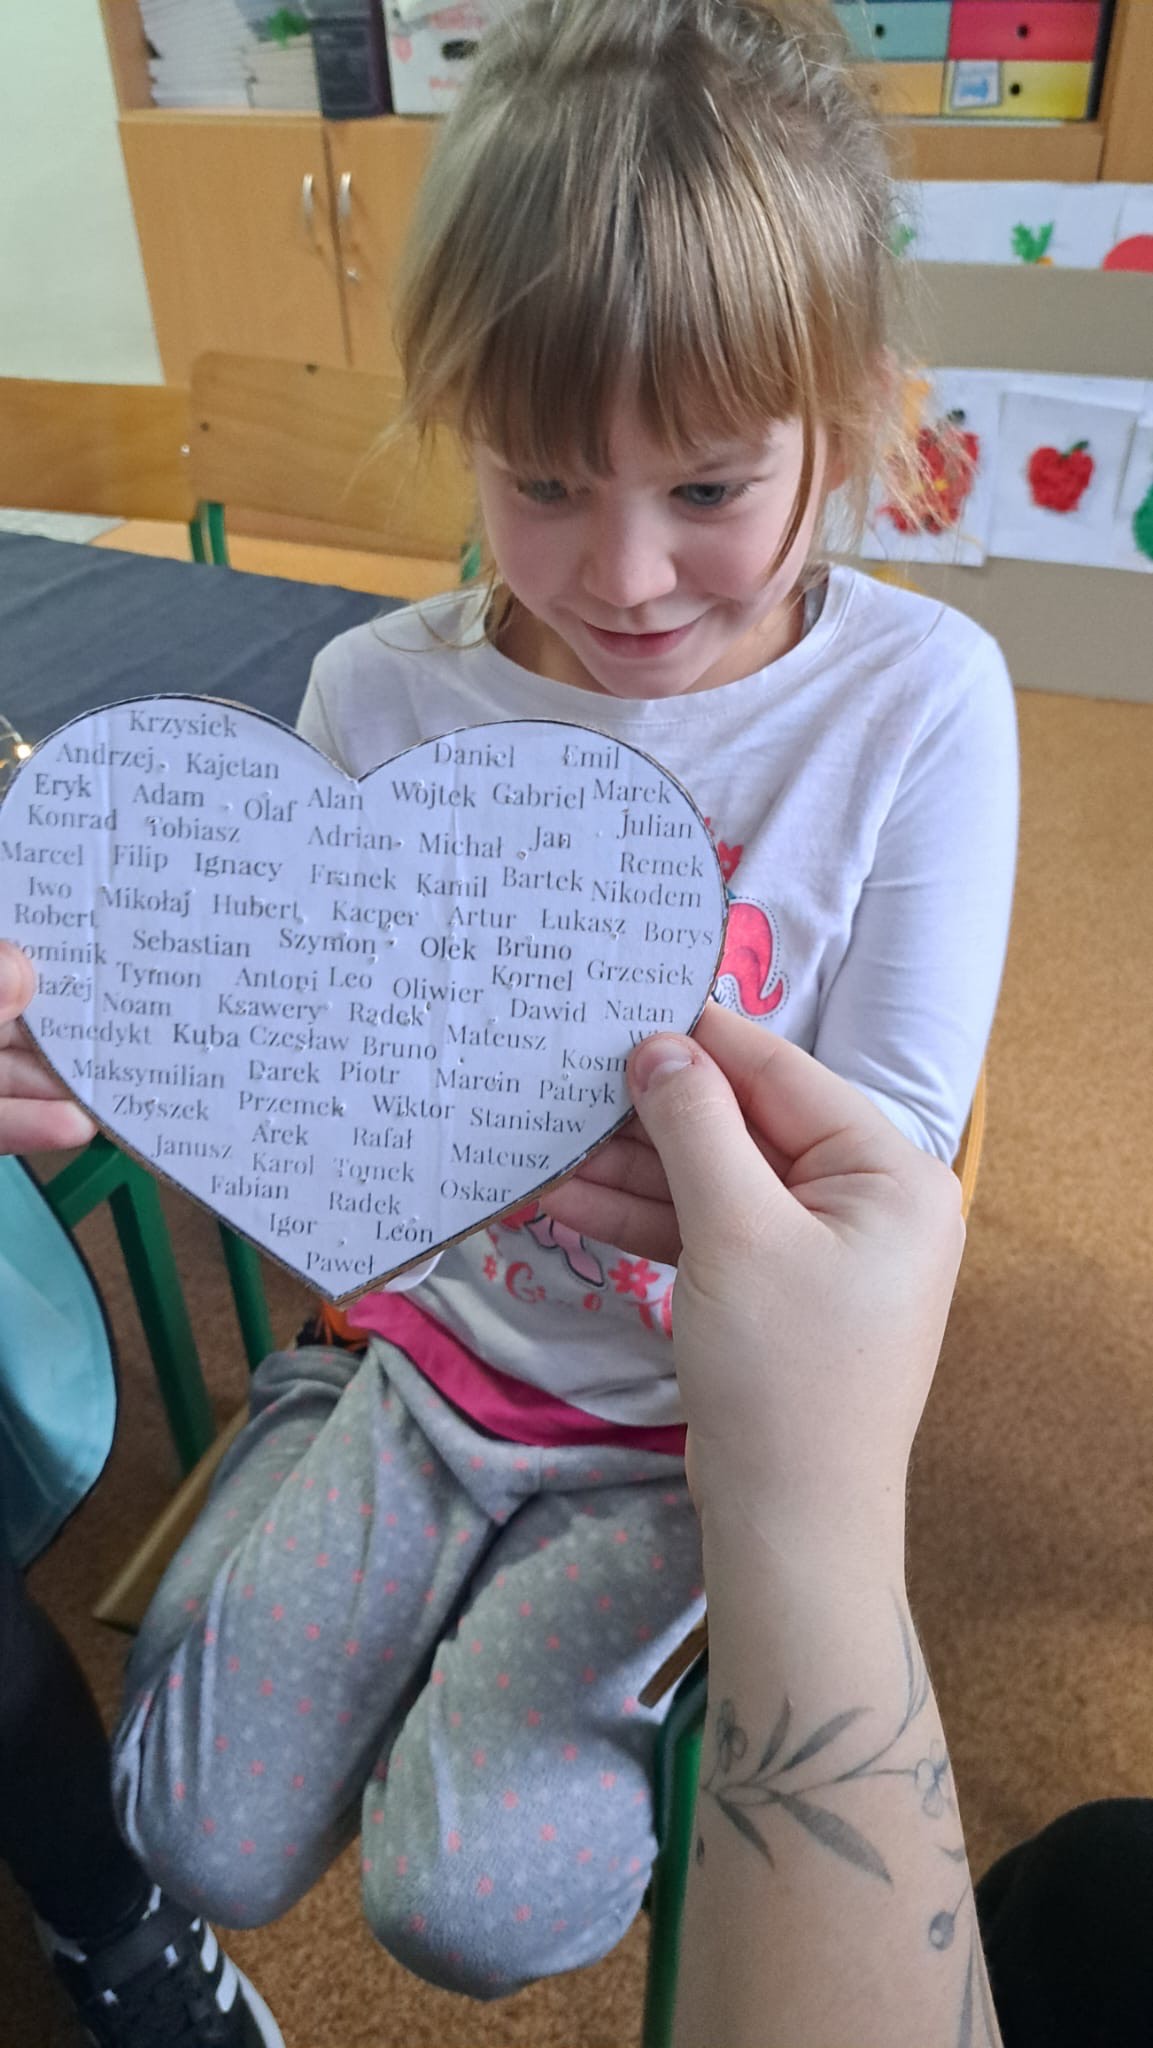 Krzysiek
Daniel Emil
Andrzej Kajetan
Eryk Adam Olaf Alan Wojtek Gabriel Marek
Konrad Tobiasz Adrian Michał Jan Julian
Marcel Filip Ignacy Franek Kamil Bartek Remek
Iwo Mikołaj Hubert Kacper Artur Łukasz Nikodem
Robert Sebastian Szymon Olek Bruno Borys
Tymon Antoni Leo Oliwier Kornel Grzesiek
Noam Ksawery Radek Dawid Natan
Benedykt Kuba Czesław Bruno Mateusz
Maksymilian Darek Piotr Marcin Patryk
Zbyszek Przemek Wiktor Stanisław
Janusz Arek Rafał Mateusz
Karol Tomek
Fabian Radek Oskar
Igor Leon
Paweł